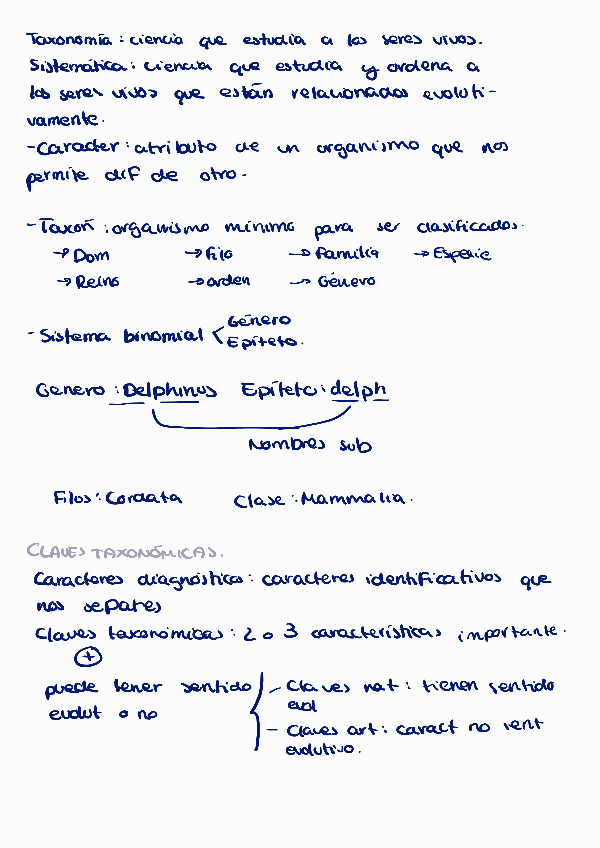 Taxonomía : ciencia que estudia a los seres vivos.
Sistemática : ciencia que estudia y ordena a
los seres vivos que están relacionados evoluti-
vamente.
- Caracter : atributo de un organismo que nos
permite dif de otro.
- Taxón : organismo mínimo para ser clasificados.
→ Dom → Filo → Familia → Especie
→ Reino → orden → Género
- Sistema binomial < Género
Epíteto.
Genero : Delphinus Epíteto : delph
Nombres sub
Filos : Cordata Clase : Mammalia.
CLAVES TAXONÓMICAS.
Caracteres diagnóstico : caracteres identificativos que
nos separes
Claves taxonómicas : 2 o 3 características importante.
+
puede tener sentido
evolut o no
- Claves nat : tienen sentido
evol
- Claves art : caract no sent
evolutivo.